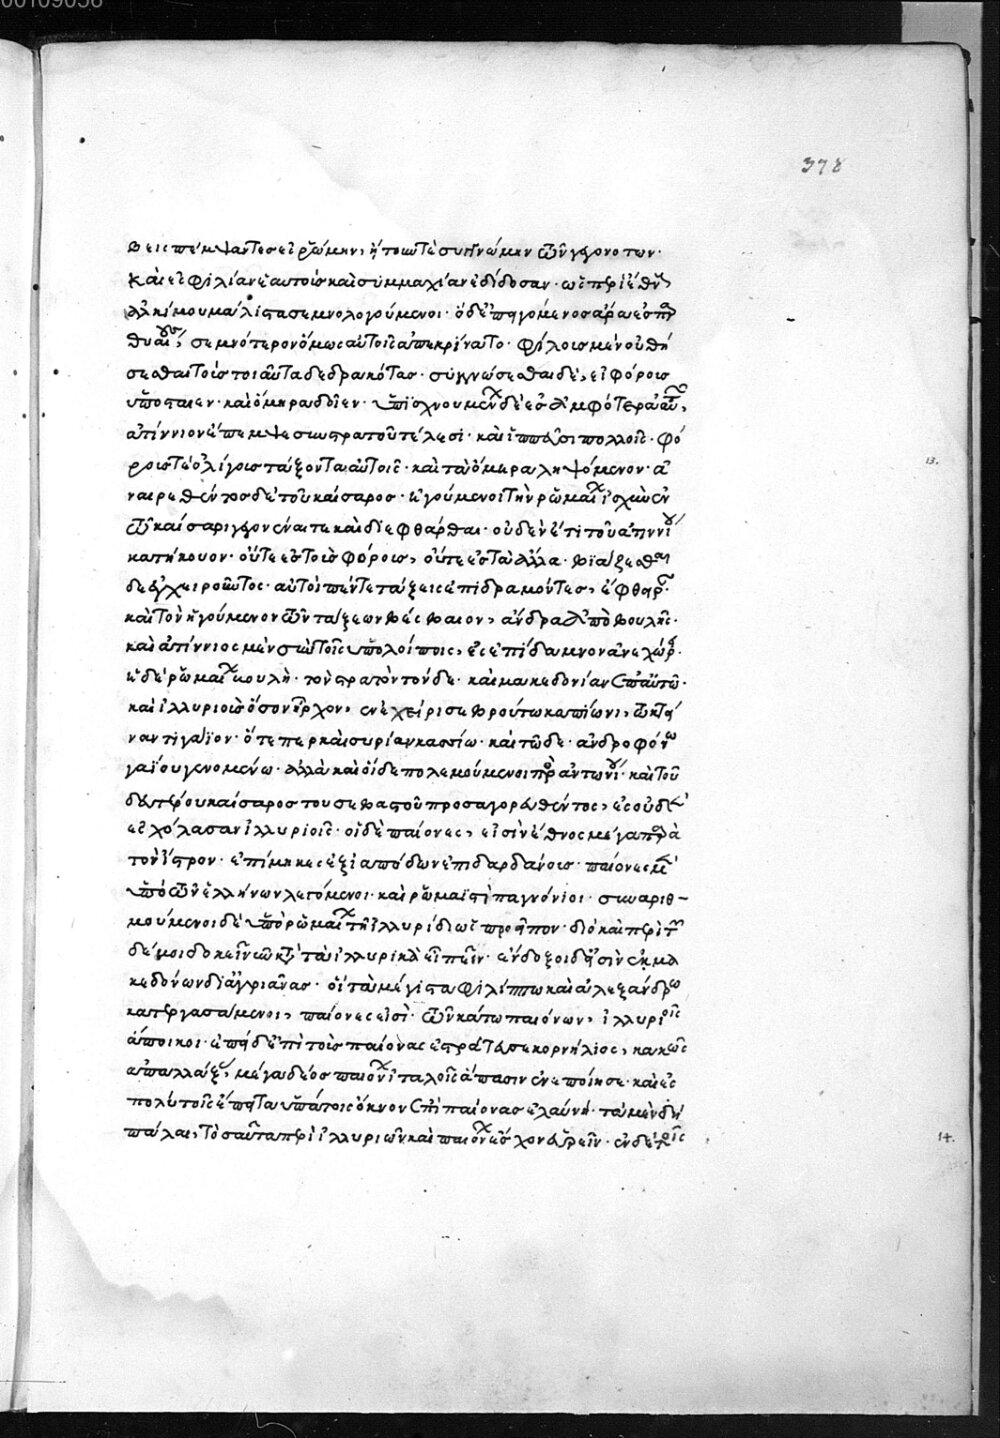 00109056
378
βεις πέμψαντες ἐς ῥώμην, ᾔτουν τε συγγνώμην τῶν γεγονότων·
καὶ ἐς φιλίαν ἑαυτοὺς καὶ συμμαχίαν ἐδίδοσαν· ὡς περὶ ἔθνους
ἀλκίμου μάλιστα σεμνολογούμενοι· ὁ δὲ ἐπειγόμενος ἄρα ἐς παρ
θυαίους, σεμνότερον ὅμως αὐτοῖς ἀπεκρίνατο· φίλους μὲν οὐ θή
σεσθαι τοὺς τοιαῦτα δεδρακότας· συγγνώσεσθαι δὲ, εἰ φόρους
ὑποσταῖεν· καὶ ὅμηρα δοῖεν· ὑπισχνουμένων δὲ ἐς ἀμφότερα αὐτῶν,
ἀτίννιον ἔπεμψε σὺν στρατοῦ τέλεσι· καὶ ἱππεῦσι πολλοῖς· φό
ρους τε ὀλίγους τάξοντα αὐτοῖς· καὶ τὰ ὅμηρα ληψόμενον· ἀ
13.
ναιρεθέντος δὲ τοῦ καίσαρος· ἡγούμενοι τὴν ῥωμαίων ἰσχὺν ἐν
τῷ καίσαρι γεγονέναι τε καὶ διεφθάρθαι· οὐδὲν ἔτι τοῦ ἀτιννίου
κατήκουον· οὔτε ἐς τοὺς φόρους, οὔτε ἐς τὰ ἄλλα· βιάζεσθαι
δὲ ἐγχειροῦντος· αὐτοὶ πέντε τάξεις ἐπιδραμόντες, ἔφθειραν·
καὶ τὸν ἡγούμενον τῶν τάξεων βέςβαιον, ἄνδρα ἀπὸ βουλῆς·
καὶ ἀτίννιος μὲν σὺν τοῖς ὑπολοίποις, ἐς ἐπίδαμνον ἀνεχώρει·
ἡ δὲ ῥωμαίων βουλὴ· τὸν στρατὸν τόνδε· καὶ μακεδονίαν ἐπ᾽ αὐτῷ·
καὶ ἰλλυριοὺς ὅσων ἦρχον, ἐνεχείρισε βρούτῳ καιπίωνι, τῷ κτεί
ναντι γάϊον· ὅτε περ καὶ συρίαν κασσίῳ· καὶ τῷδε· ἀνδροφόνῳ
γαΐου γενομένῳ· ἀλλὰ καὶ οἵδε πολεμούμενοι πρὸς ἀντωνίου· καὶ τοῦ
δευτέρου καίσαρος τοῦ σεβαστοῦ προσαγορευθέντος, ἐς οὐδὲν
ἐσχόλασαν ἰλλυριοῖς· οἱ δὲ παίονες, εἰσὶν ἔθνος μέγα παρὰ
τὸν ἴστρον· ἐπίμηκες ἐξ ἰαπόδων ἐπὶ δαρδάνους· παίονες μὲν
ὑπὸ τῶν ἑλλήνων λεγόμενοι· καὶ ῥωμαϊστὶ παννόνιοι· συναριθ-
μούμενοι δὲ ὑπὸ ῥωμαίων τῇ ἰλλυρίδι ὡς προεῖπον· διὸ καὶ περὶ τῶν
δέ μοι δοκεῖ νῦν κατὰ τὰ ἰλλυρικὰ εἰπεῖν· ἔνδοξοι δέ εἰσιν ἐκ μα
κεδόνων δι᾽ ἀγριᾶνας· οἳ τὰ μέγιστα φιλίππῳ καὶ ἀλεξάνδρῳ
κατεργασάμενοι, παίονές εἰσι· τῶν κάτω παιόνων, ἰλλυριοῖς
ἄποικοι· ἐπεὶ δὲ ἐπὶ τοὺς παίονας ἐστράτευσε κορνήλιος, κακῶς
ἀπαλλάξας, μέγα δέος παιόνων ἰταλοῖς ἅπασιν ἐνεποίησε· καὶ ἐς
πολὺ τοῖς ἔπειτα ὑπάτοις ὄκνον ἐπὶ παίονας ἐλαύνειν· τὰ μὲν δὴ
πάλαι, τοσαῦτα περὶ ἰλλυριῶν καὶ παιόνων ἔσχον εὑρεῖν· ἐν δὲ τοῖς
14.